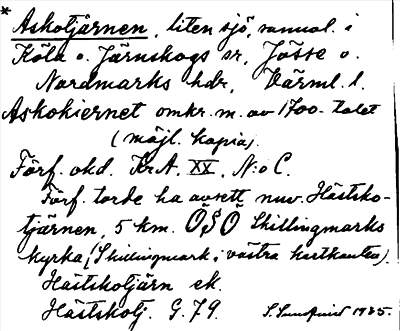 * Askotjärnen, liten sjö, sannol. i
Köla o. Järnskogs sr, Jösse o.
Nordmarks hdr, Värml. l.
Askokiernet omkr. m. av 1700-talet
(möjl. kopia).
Förf. okd. Kr.A. XX, N:o C.
Förf. torde ha avsett nuv. Hästsko-
tjärnen, 5 km. ÖSÖ Skillingmarks
kyrka, (Skillingmark i västra kartkanten).
Hästskotjärn ek.
Hästskotj. G. 79.
S. Sundquist 1935.